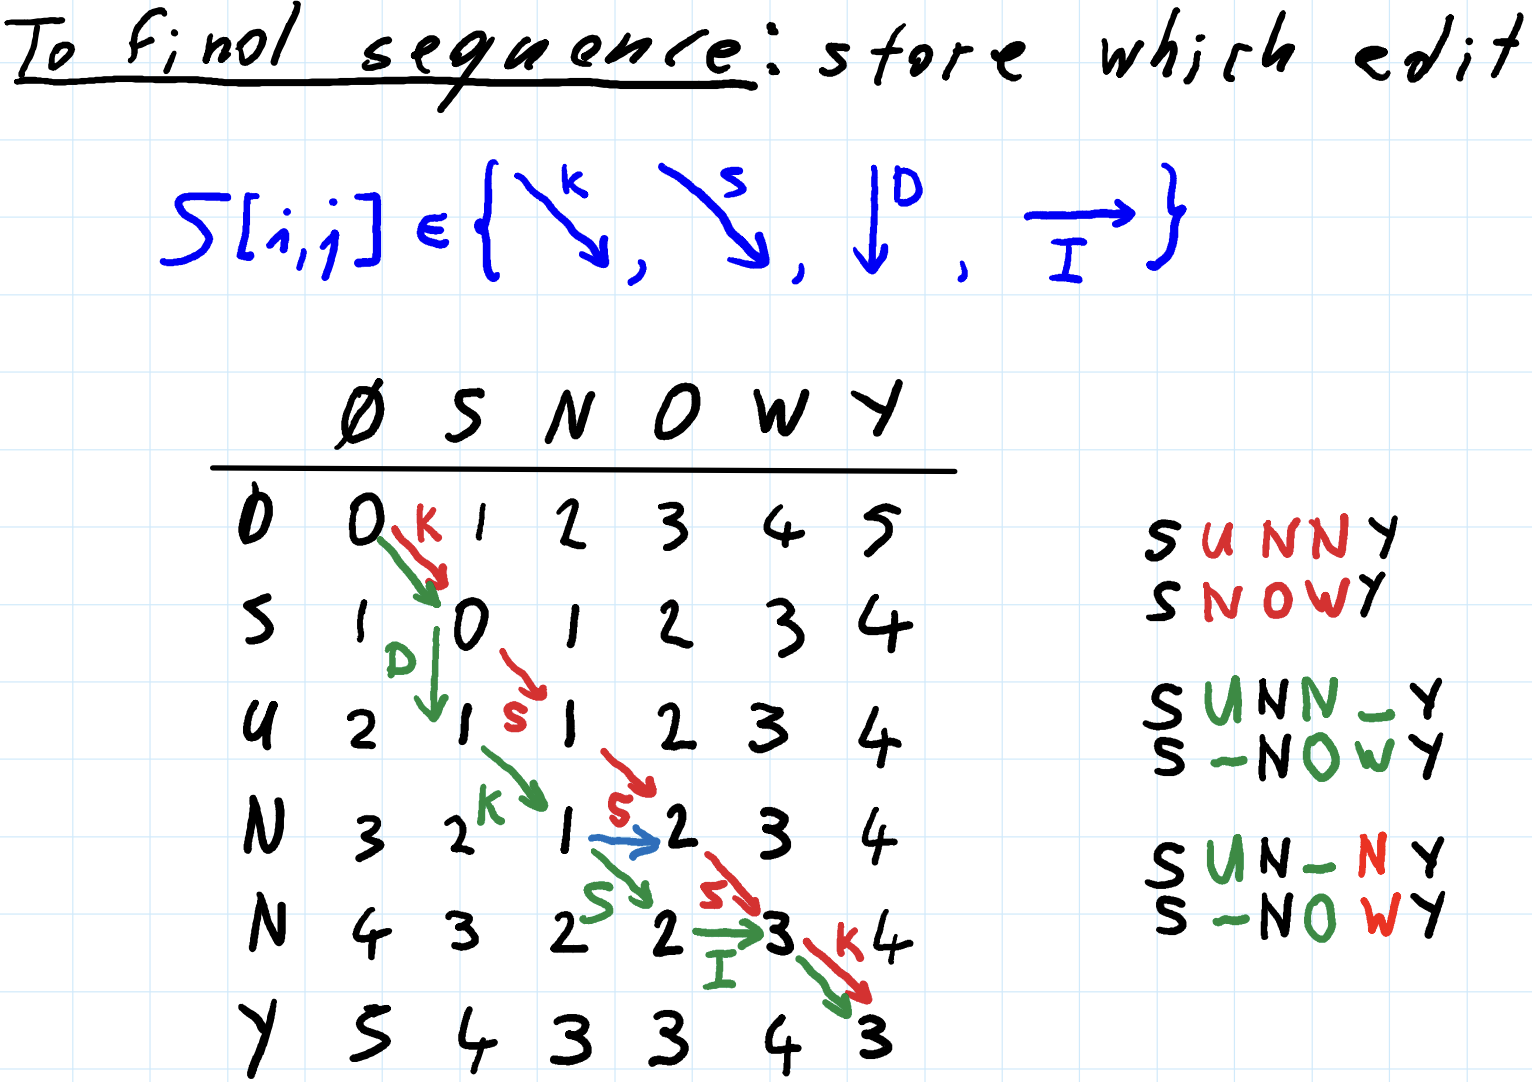 To final sequence: store which edit
S[i,j] ∈ { ↘ K, ↘ S, ↓ D, → I }
Ø S N O W Y
Ø 0 K 1 2 3 4 5
S 1 0 1 2 3 4
D S
U 2 1 1 2 3 4
K S
N 3 2 1 2 3 4
S S
N 4 3 2 2 3 K 4
I
Y 5 4 3 3 4 3
S U N N Y
S N O W Y
S U N N _ Y
S - N O W Y
S U N _ N Y
S - N O W Y